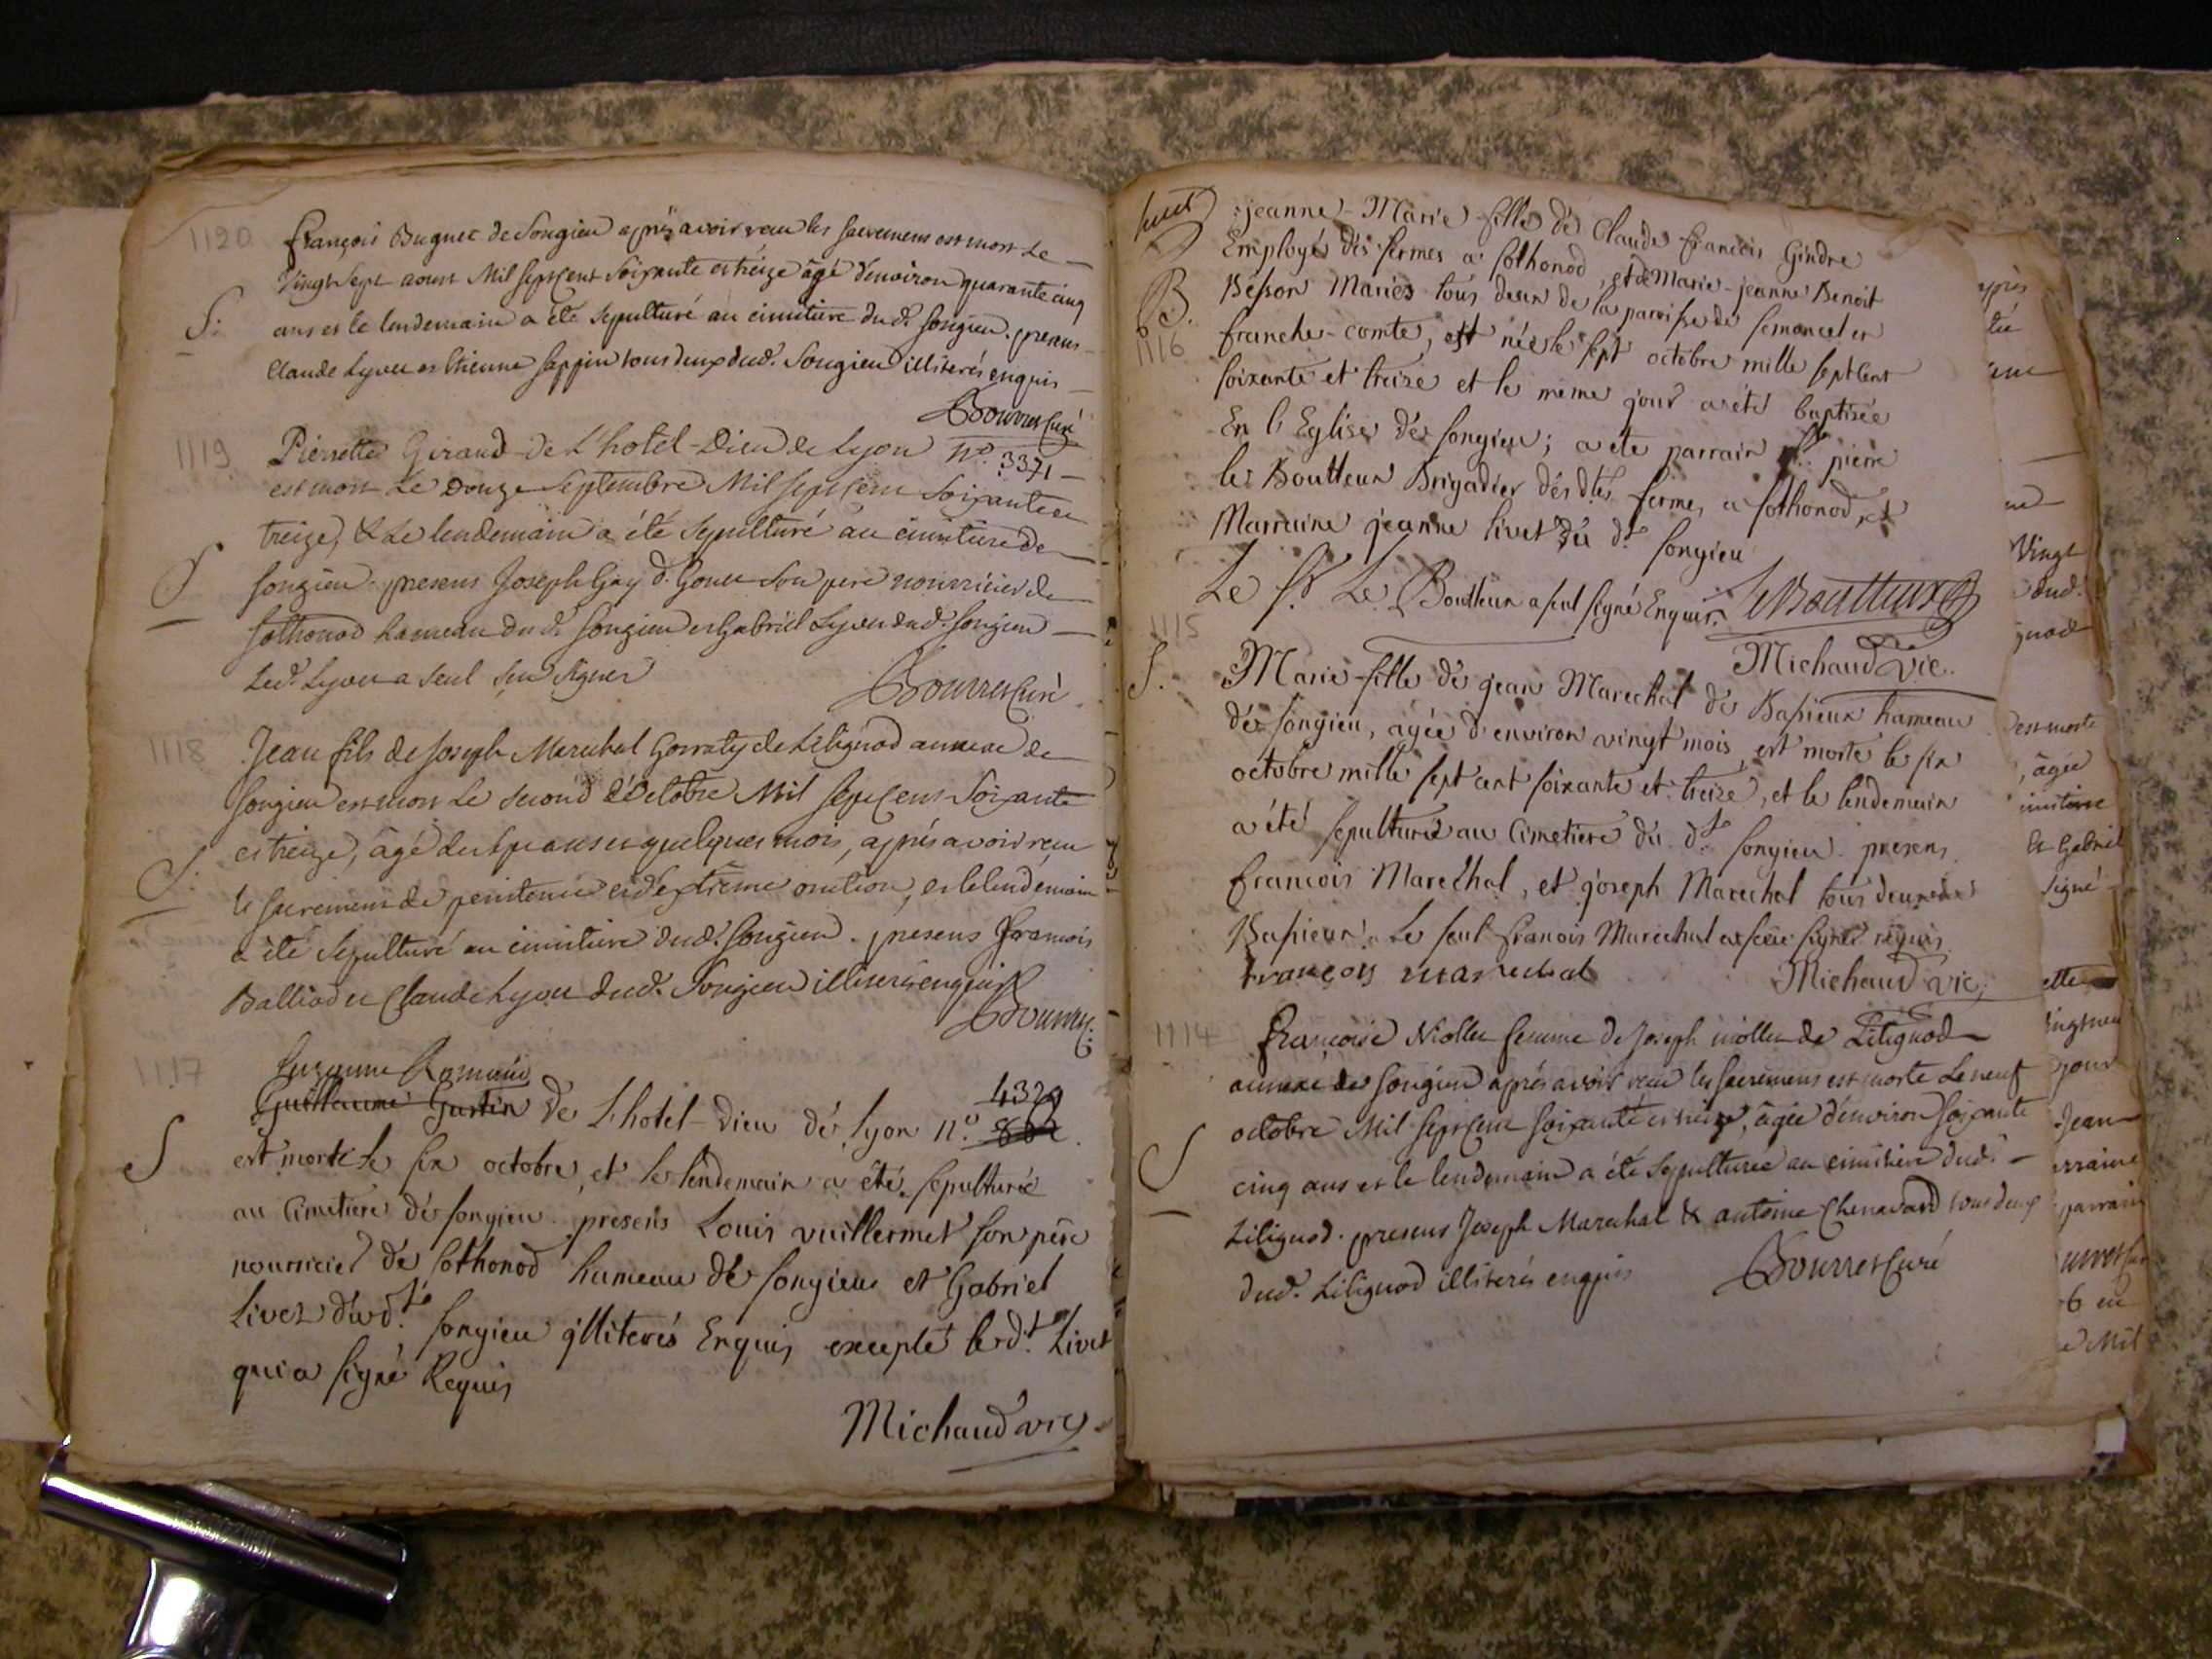 1120
françois Bugnet de Songieu après avoir reçu les sacremens est mort Le
Vingt Sept aoust Mil Sept Cent Soixante et treize âgé d'environ quarante cinq
S.
ans et le lendemain a été sepulturé au cimitiere dud. Songieu. presens
Claude Lyvet et Etienne Sappin tous deux dud. Songieu illiterés enquis
Bourret Curé
1119
Pierrette Giraud de L'hotel-Dieu de Lyon n.o 3371
est mort Le Douze Septembre Mil Sept Cent Soixante et
treize, & Le lendemain a été Sepulturé au cimitiere de
S
Songieu presens Joseph Gay d. Gonet Son pere nourricier de
Sothonod hameau dud. Songieu et Gabriel Lyvet dud. Songieu
Led. Lyvet a Seul Seu Signer
Bourret Curé
1118
Jean fils de Joseph Marechal Gorraty de Lilignod annexe de
Songieu est mort Le Second d'Octobre Mil Sept Cent Soixante
et treize, âgé de sept ans et quelques mois, après avoir reçu
S.
le sacrement de penitence et d'extrême onction, et le lendemain
a été Sepulturé au cimitiere dud. Songieu. presens françois
Balliod et Claude Lyvet dud. Songieu illiterés enquis
Bourret C.
1117
Suzanne Romain
Guillaume Gustin De L'hotel-Dieu dé Lyon n.o 4329
S
est morte le six octobre, et le lendemain a été sepulturée
au Cimetiere dé songieu. presens Louis vuillermet son père
nourricier de Sothonod hameau dé songieu et Gabriel
Livet dud.t songieu illiterés Enquis excepté led.t Livet
qui a signé Requis
Michaud vic.
jeanne-Marie fille dé Claude francois Gindre
Employé dés fermes a Sothonod, et de Marie-jeanne Benoit
B.
Besson Mariés tous deux de la paroisse de semoncel en
1116
franche-comte, est née le sept octobre mille sept cent
soixante et treize et le même jour a été baptisée
En l'Eglise dé songieu; a ete parrain s.r pierre
le Boutteux Brigadier dés d.tes fermes a Sothonod, et
Marraine jeanne livet du d.t songieu
Le s.r Le Boutteux a seul signé Enquis. LeBoutteux
Michaud Vic.
1115
S.
Marie fille dé jean Marechal dé Bassieux hameau
dé songieu, agée d'environ vingt mois, est morte le six
octobre mille sept cent soixante et treize, et le lendemain
a été sepulturée au Cimetiere du d.t songieu. presens
francois Marechal, et joseph Marechal tous deux de
Bassieux. Le seul francois Marechal a sceu signer requis
françois marechal
Michaud vic.
1114
françoise Niollet femme de Joseph niollet de Lilignod
annexe de Songieu après avoir reçu les sacremens est morte Le neuf
octobre Mil Sept Cent Soixante et treize, âgée d'environ soixante
S
cinq ans et le lendemain a été Sepulturée au cimitiere dud.
Lilignod. presens Joseph Marechal & antoine Chenavard tous deux
dud. Lilignod illiterés enquis
Bourret Curé
Vingt
dud.
est morte
, âgée
imitiere
et Gabriel
signé
pour
Jean
parrain
6 en
Mil